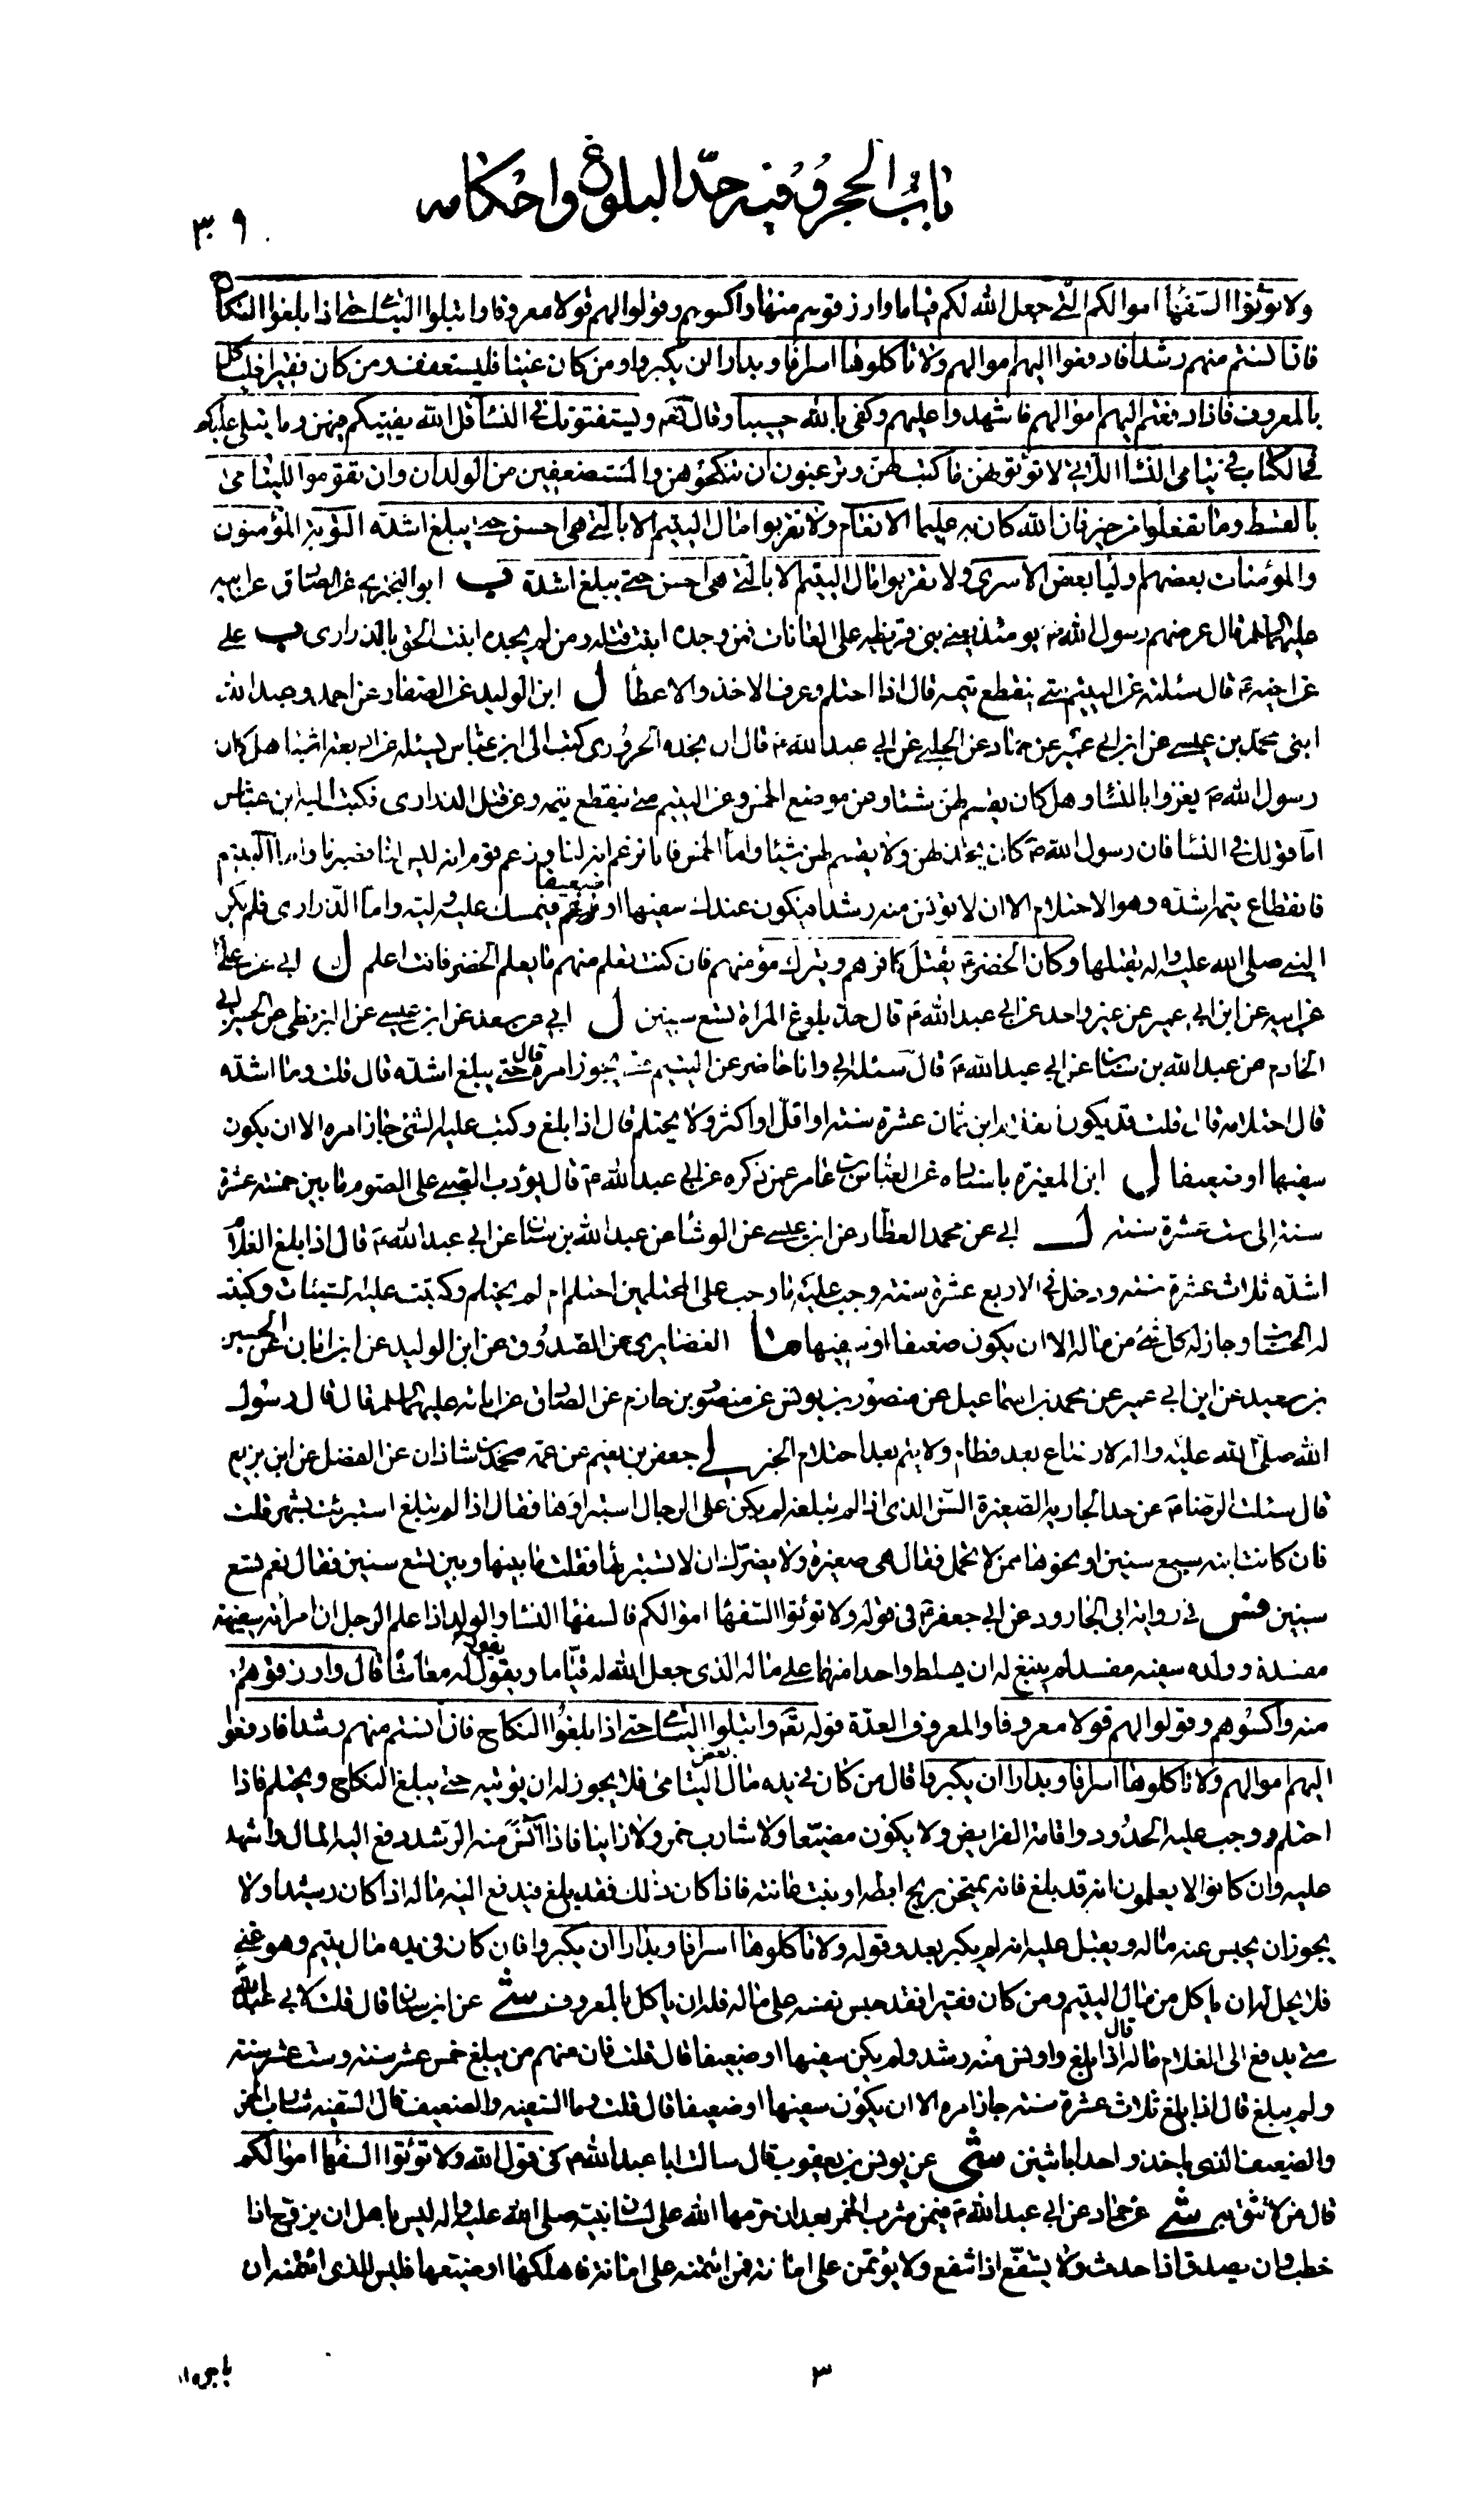 باب الحجر وفيه حدّ البلوغ واحكامه
٣٠٩
ولا تؤتوا السّفهاء اموالكم الّتي جعل الله لكم قياما وارزقوهم منها واكسوهم وقولوا لهم قولا معروفا وابتلوا اليتامى حتى اذا بلغوا النكاح
فان آنستم منهم رشدا فادفعوا اليهم اموالهم ولا تاكلوها اسرافا وبدارا ان يكبروا ومن كان غنيا فليستعفف ومن كان فقيرا فلياكل
بالمعروف فاذا دفعتم اليهم اموالهم فاشهدوا عليهم وكفى بالله حسيبا وقال تعم ويستفتونك في النساء قل الله يفتيكم فيهن وما يتلى عليكم
في الكتاب في يتامى النساء اللاتي لا تؤتونهن ما كتب لهن وترغبون ان تنكحوهن والمستضعفين من الولدان وان تقوموا لليتامى
بالقسط وما تفعلوا من خير فان الله كان به عليما الانعام ولا تقربوا مال اليتيم الا بالتي هي احسن حتى يبلغ اشدّه التوبة المؤمنون
والمؤمنات بعضهم اولياء بعض الاسرى ولا تقربوا مال اليتيم الا بالتي هي احسن حتى يبلغ اشدّه ب ابو البختري عن الصادق عن ابيه
عليهما السلام قال عرضهم رسول الله ص يومئذ يعني بني قريظة على العانات فمن وجده انبت قتله ومن لم يجده انبت الحق بالذراري ب علي
عن اخيه ع قال سئلته عن اليتيم متى ينقطع يتمه قال اذا احتلم وعرف الاخذ والاعطاء ل ابن الوليد عن الصفار عن احمد وعبد الله
ابنى محمد بن عيسى عن ابن ابي عمير عن حماد عن الحلبي عن ابي عبد الله ع قال ان نجدة الحروري كتب الى ابن عباس يسئله عن اربعة اشياء هل كان
رسول الله ص يغزوا بالنساء وهل كان يقسم لهن شيئا وعن موضع الخمس وعن اليتيم متى ينقطع يتمه وعن قتل الذراري فكتب اليه ابن عباس
اما قولك في النساء فان رسول الله ص كان يحذيهن ولا يقسم لهن شيئا واما الخمس فانا نزعم انه لنا وزعم قوم انه ليس لنا فصبرنا واما اليتيم
فانقطاع يتمه اشدّه وهو الاحتلام الا ان لا تونس منه رشدا فيكون عندك سفيها او ضعيفا فيمسك عليه وليه واما الذّراري فلم يكن
النبي صلى الله عليه واله يقتلها وكان الخضر ع يقتل كافرهم ويترك مؤمنهم فان كنت تعلم منهم ما يعلم الخضر فانت اعلم ل ابي عن علي
عن ابيه عن ابن ابي عمير عن غير واحد عن ابي عبد الله ع قال حدّ بلوغ المراة تسع سنين ل ابي عن سعد عن ابن عيسى عن البزنطي عن ابي الحسين
الخادم عن عبد الله بن سنان عن ابي عبد الله ع قال سئله ابي وانا حاضر عن اليتيم متى يجوز امره قال حتى يبلغ اشدّه قال قلت وما اشدّه
قال احتلامه قال قلت قد يكون الغلام ابن ثمان عشرة سنة او اقلّ او اكثر ولا يحتلم قال اذا بلغ وكتب عليه الشئ جاز امره الا ان يكون
سفيها او ضعيفا ل ابن المغيرة باسناده عن العباس بن عامر عمن ذكره عن ابي عبد الله ع قال يؤدب الصبي على الصوم ما بين خمسة عشرة
سنة الى ست عشرة سنة ل ابي عن محمد العطار عن ابن عيسى عن الوشا عن عبد الله بن سنان عن ابي عبد الله ع قال اذا بلغ الغلام
اشدّه ثلاث عشرة سنة ودخل في الاربع عشرة سنة وجب عليه ما وجب على المحتلمين احتلم ام لم يحتلم وكتبت عليه السّيئات وكتبت
له الحسنات وجاز له كل شئ من ماله الا ان يكون ضعيفا او سفيها ما الغضايري عن الصدوق عن ابن الوليد عن ابن ابان عن الحسين
بن سعيد عن ابن ابي عمير عن محمد بن اسماعيل عن منصور بن يونس عن منصور بن حازم عن الصادق عن ابائه عليهم السلام قال قال رسول
الله صلى الله عليه واله لا رضاع بعد فطام ولا يتم بعد احتلام الخبر جعفر بن نعيم عن عمه محمد بن شاذان عن الفضل عن ابن بزيع
قال سئلت الرّضا ع عن حد الجارية الصّغيرة السّن الذي اذا لم تبلغه لم يكن على الرجال استبراؤها فقال اذا لم تبلغ استبرئت بشهر قلت
فان كانت ابنة سبع سنين او نحوها ممن لا تحمل فقال هي صغيرة ولا يضرّك ان لا تستبرئها فقلت ما بينها وبين تسع سنين فقال نعم تسع
سنين فس في رواية ابي الجارود عن ابي جعفر ع في قوله ولا تؤتوا السّفهاء اموالكم فالسفهاء النساء والولد اذا علم الرجل ان امراته سفيهة
مفسدة وولده سفيه مفسد لم ينبغ له ان يسلط واحدا منهما على ماله الذي جعل الله له قيّاما بقوله يقول له معاشا قال وارزقوهم
منه واكسوهم وقولوا لهم قولا معروفا والمعروف العدّة قوله تعم وابتلوا اليتامى حتى اذا بلغوا النكاح فان آنستم منهم رشدا فادفعوا
اليهم اموالهم ولا تاكلوها اسرافا وبدارا ان يكبروا قال من كان في يده مال بعض اليتامى فلا يجوز له ان يؤتيه حتى يبلغ النكاح ويحتلم فاذا
احتلم ووجب عليه الحدود واقامة الفرايض ولا يكون مضيّعا ولا شارب خمر ولا زانيا فاذا آنس منه الرّشد دفع اليه المال واشهد
عليه وان كانوا لا يعلمون انه قد بلغ فانه يمتحن بريح ابطه او نبت عانته فاذا كان ذلك فقد بلغ فيدفع اليه ماله اذا كان رشيدا ولا
يجوز ان يحبس عنه ماله ويعتل عليه انه لم يكبر بعد وقوله ولا تاكلوها اسرافا وبدارا ان يكبروا فان كان في يده مال يتيم وهو غني
فلا يحل له ان ياكل من مال اليتيم ومن كان فقيرا فقد حبس نفسه على ماله فله ان ياكل بالمعروف شي عن ابن سنان قال قلت لابي عبد الله
متى يدفع الى الغلام ماله قال اذا بلغ واونس منه رشد ولم يكن سفيها او ضعيفا قال قلت فان منهم من يبلغ خمس عشر سنة وست عشر سنة
ولم يبلغ قال اذا بلغ ثلاث عشرة سنة جاز امره الا ان يكون سفيها او ضعيفا قال قلت وما السّفيه والضعيف قال السّفيه شارب الخمر
والضعيف الذي ياخذ واحدا باثنين شي عن يونس بن يعقوب قال سالت ابا عبد الله ع في قول الله ولا تؤتوا السفهاء اموالكم
قال من لا تثق به شي عن حماد عن ابي عبد الله ع فيمن شرب الخمر بعد ان حرمها الله على لسان نبيه صلى الله عليه واله ليس باهل ان يزوّج اذا
خطب وان يصدق اذا حدث ولا يشفّع اذا شفع ولا يؤتمن على امانة فمن ائتمنه على امانة فاهلكها او ضيّعها فليس للذي ائتمنه ان
٣